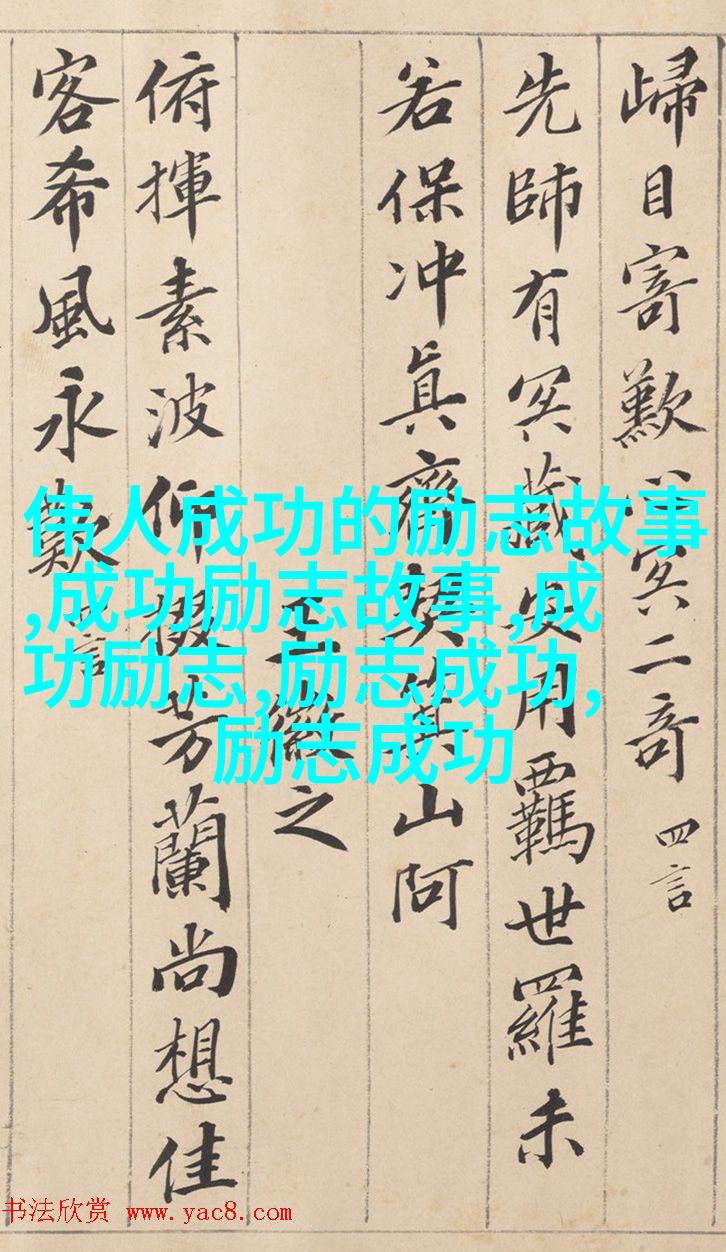 歸目寄歎心冥二奇 四言
先師有冥藏安用羈世羅未
若保冲真齊契箕山阿
王徽之
俯揮素波仰掇芳蘭尚想佳
客希風永歎 言
伟人成功的励志故事
,成功励志故事,成
功励志,励志成功,
励志成功
书法欣赏 www.yac8.com